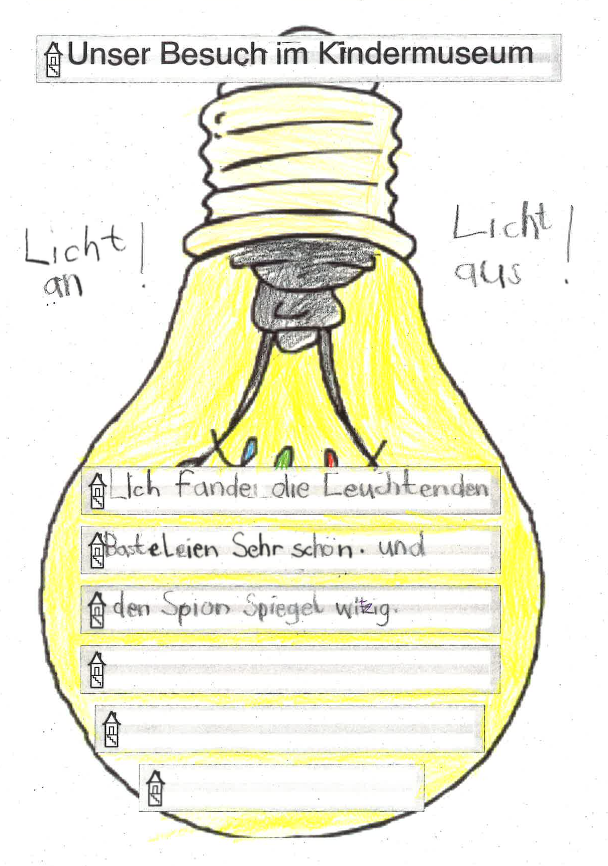 Unser Besuch im Kindermuseum
Licht an!
Licht aus!
Ich fande die Leuchtenden
Basteleien Sehr schön. und
den Spion Spiegel witzig.